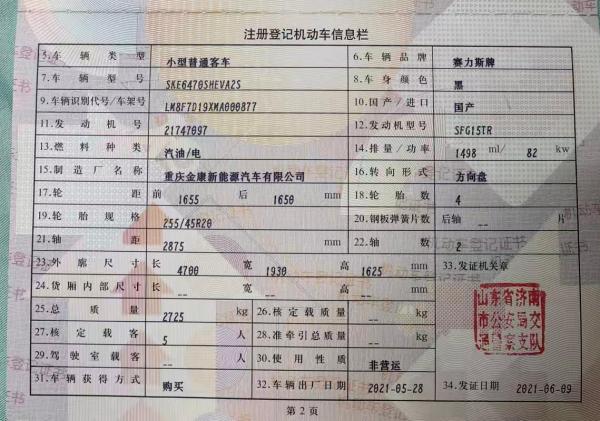 注册登记机动车信息栏
5.车辆类型 小型普通客车 6.车辆品牌 赛力斯牌
7.车辆型号 SKE6470SHEVA2S 8.车身颜色 黑
9.车辆识别代号/车架号 LM8F7D19XMA000877 10.国产/进口 国产
11.发动机号 21747097 12.发动机型号 SFG15TR
13.燃料种类 汽油/电 14.排量/功率 1498 ml/ 82 kw
15.制造厂名称 重庆金康新能源汽车有限公司 16.转向形式 方向盘
17.轮距 前 1655 后 1650 mm 18.轮胎数 4
19.轮胎规格 255/45R20 20.钢板弹簧片数 后轴 -- 片
21.轴距 2875 mm 22.轴数 2
23.外廓尺寸 长 4700 宽 1930 高 1625 mm 33.发证机关章
24.货厢内部尺寸 长 -- 宽 -- 高 -- mm
25.总质量 2725 kg 26.核定载质量 -- kg
27.核定载客 5 人 28.准牵引总质量 -- kg
29.驾驶室载客 -- 人 30.使用性质 非营运
31.车辆获得方式 购买 32.车辆出厂日期 2021-05-28 34.发证日期 2021-06-09
山东省济南
市公安局交
通警察支队
第2页